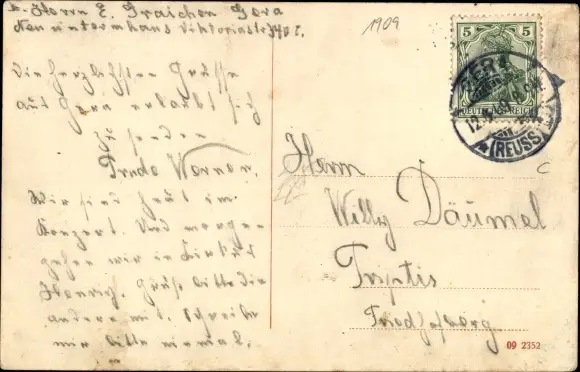 Herrn E. Graichen Gera
Untermhaus Viktoriastr.
1909
Die herzlichsten Grüsse
aus Gera erlaubt sich
zu senden
Frida Werner.
Wir sind heut im
Konzert. Und morgen
gehen wir in Zirkus
Henrich. Grüße bitte die
andern mit. Schreibe
mir bitte einmal.
5 5
DEUTSCHES REICH
GERA
12.
09
(REUSS)
Herrn
Willy Däumel
Triptis
Friedhofberg
09 2352